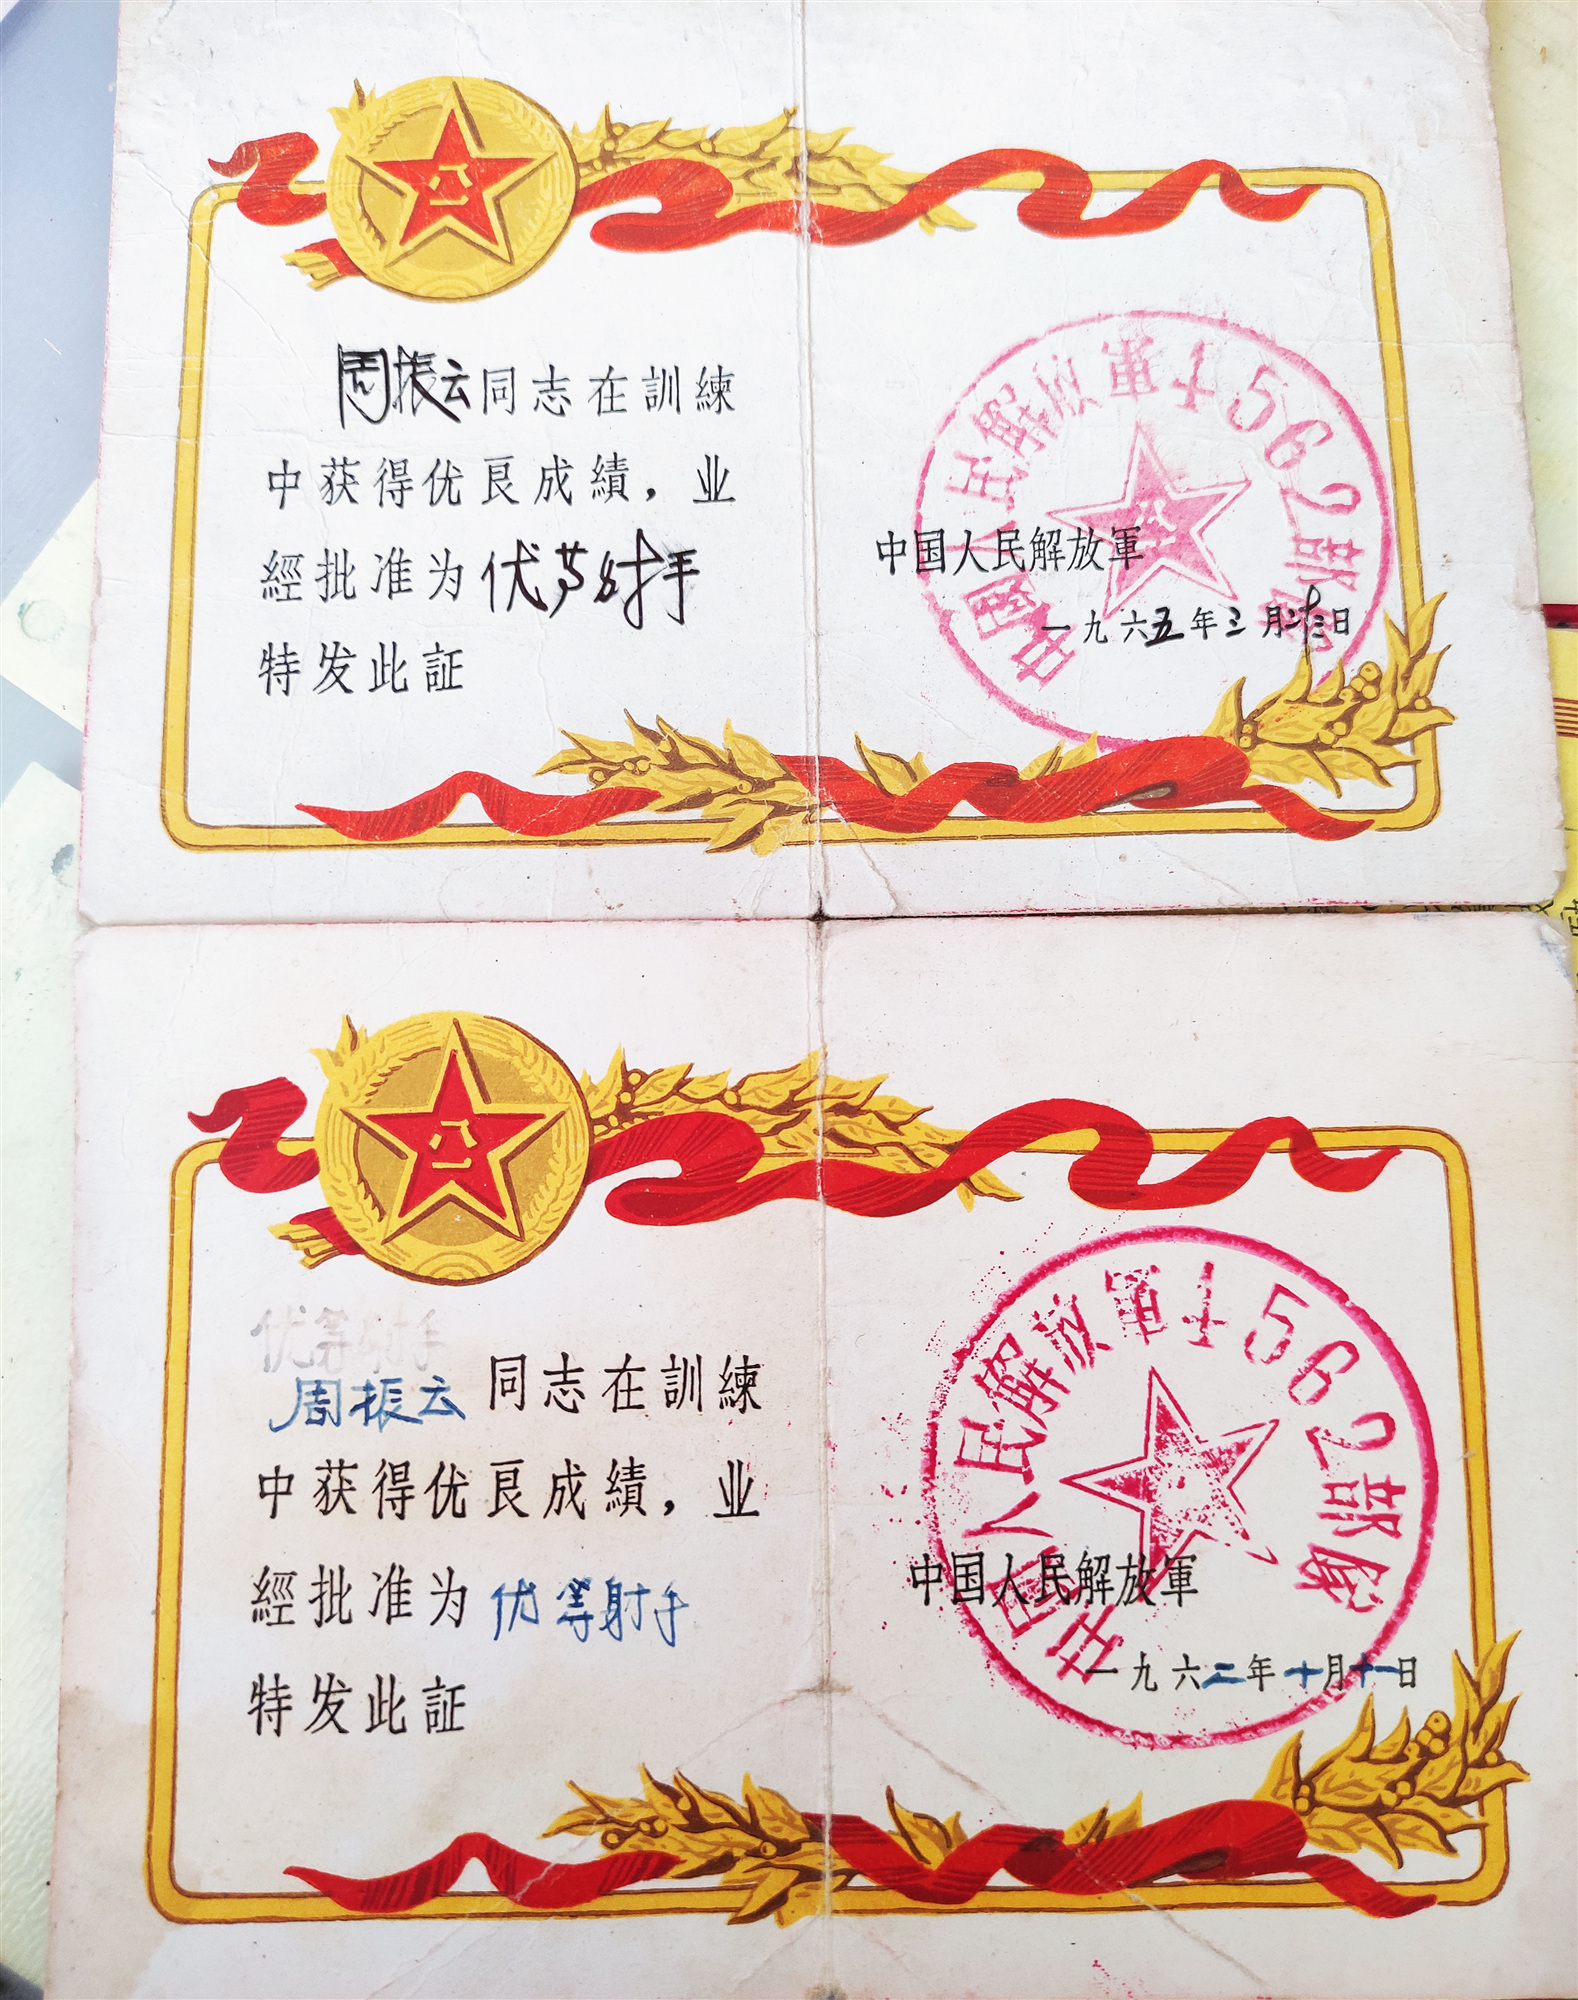 八一
周振云同志在訓練
中获得优良成績，业
經批准为优等射手
特发此証
中国人民解放軍4562部隊
中国人民解放軍
一九六五年三月廿三日
八一
优等射手
周振云同志在訓練
中获得优良成績，业
經批准为优等射手
特发此証
中国人民解放軍4562部隊
中国人民解放軍
一九六二年十月十一日